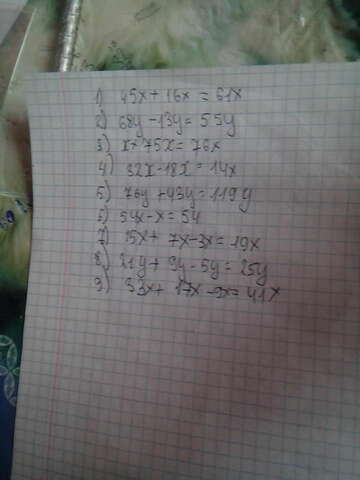 1) 45x + 16x = 61x
2) 68y - 13y = 55y
3) x + 75x = 76x
4) 32x - 18x = 14x
5) 76y + 43y = 119y
6) 54x - x = 54
7) 15x + 7x - 3x = 19x
8) 21y + 9y - 5y = 25y
9) 33x + 17x - 9x = 41x